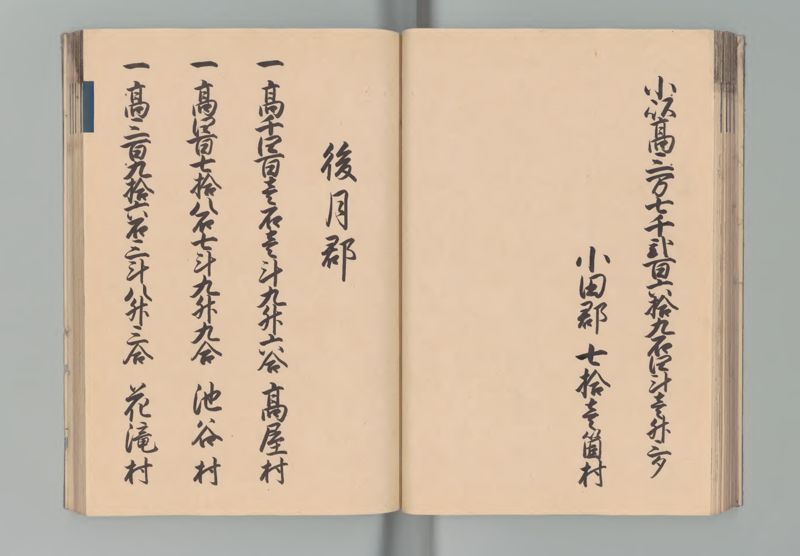 小以高二万七千弐百六拾九石四斗壱升六夕
小田郡七拾壱箇村
後月郡
一高千四百壱石壱斗九升六合 高屋村
一高四百七拾八石七斗九升九合 池谷村
一高二百九拾六石二斗八升三合 花滝村